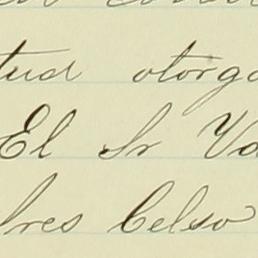 tud otorga
El Sr Va
lres Celso